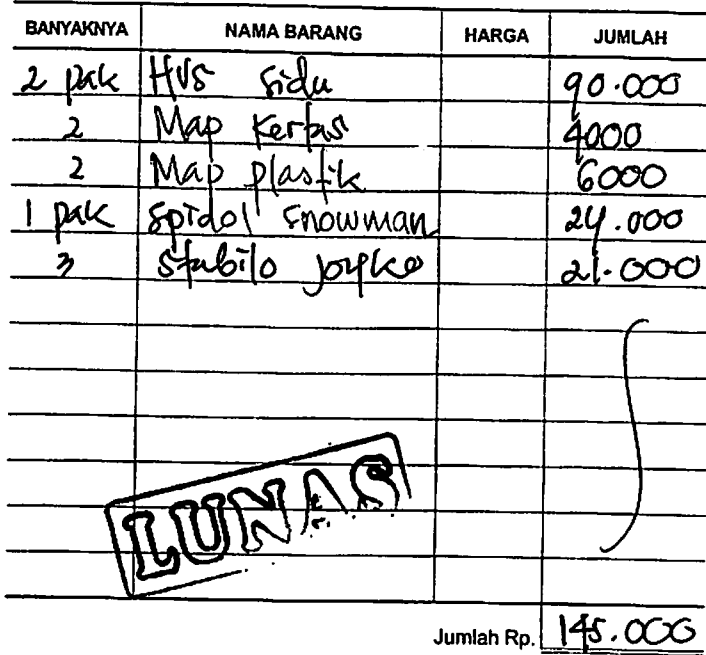 BANYAKNYA NAMA BARANG HARGA JUMLAH
2 pak HVS Sidu 90.000
2 Map Kertas 4000
2 Map plastik 6000
1 pak Spidol Snowman 24.000
3 Stabilo joyko 21.000
LUNAS
Jumlah Rp. 145.000